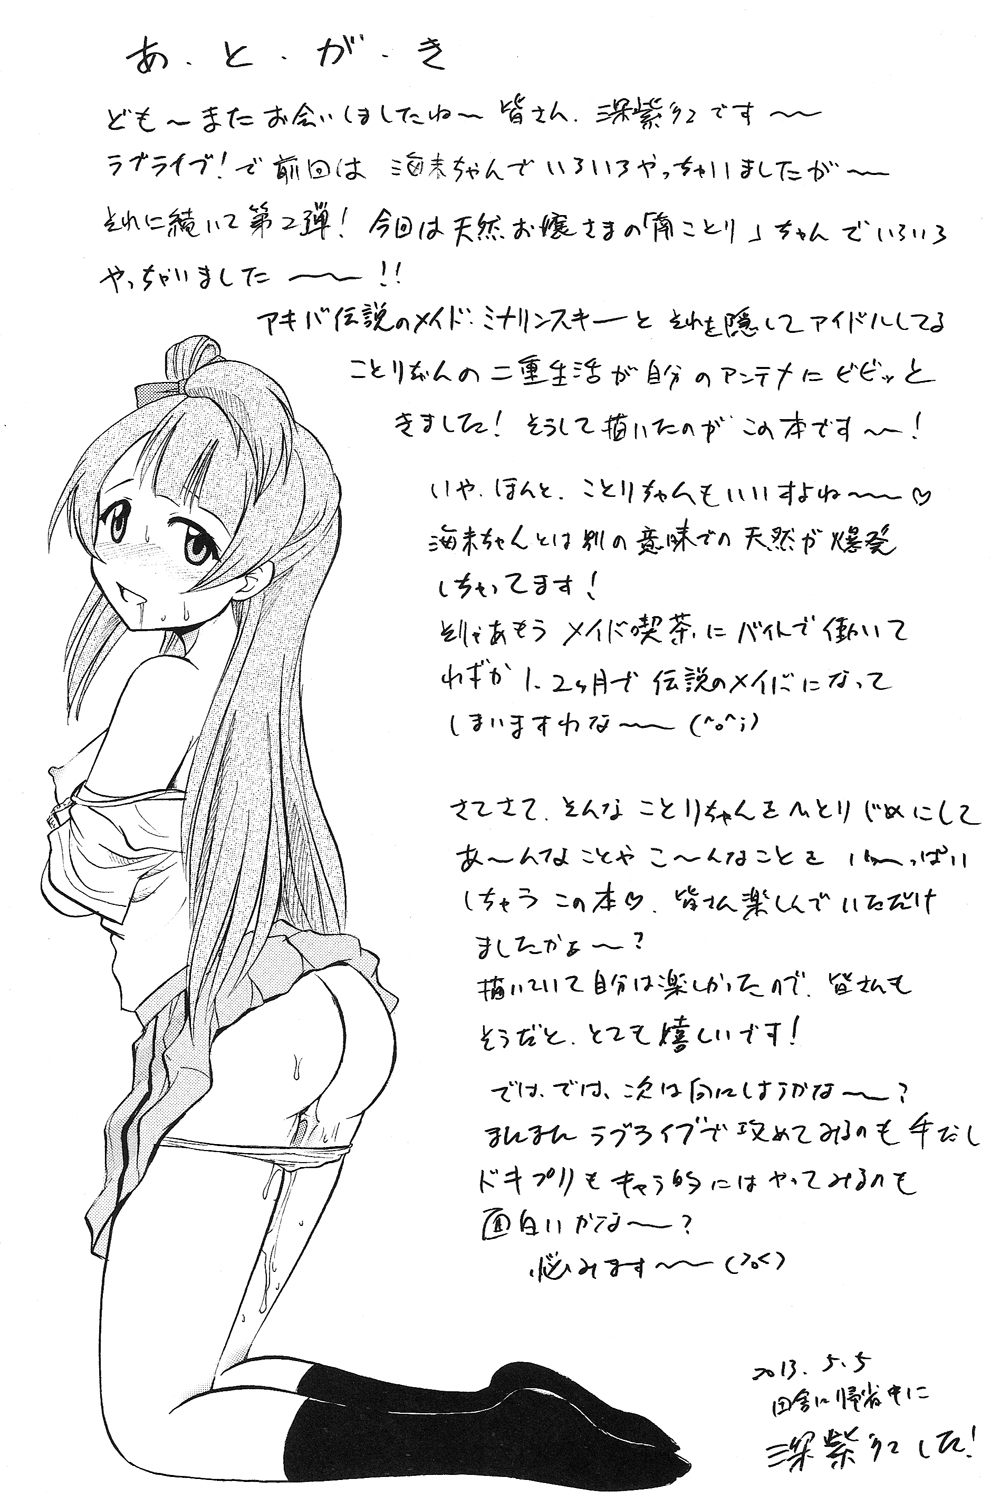 あ・と・が・き
ども〜またお会いしましたね〜皆さん、深紫幻です〜〜
ラブライブ!で前回は 海未ちゃんでいろいろやっちゃいましたが〜〜
それに続いて第2弾! 今回は天然お嬢さまの「南ことり」ちゃんでいろいろ
やっちゃいました〜〜!!
アキバ伝説のメイド・ミナリンスキーと それを隠してアイドルしてる
ことりちゃんの二重生活が自分のアンテナにビビッと
きました! そうして描いたのが この本です〜〜!
いや、ほんと、ことりちゃんもいいすよね〜〜♡
海未ちゃんとは別の意味での天然が爆発
しちゃってます!
そりゃあもう メイド喫茶にバイトで働いて
わずか1、2ヶ月で伝説のメイドになって
しまいますわな〜〜(^o^;)
さてさて、そんなことりちゃんをひとりじめにして
あ〜んなことやこ〜んなことを い〜っぱい
しちゃうこの本♡、皆さん楽しんでいただけ
ましたかぁ〜?
描いていて自分は楽しかったので、皆さんも
そうだと、とても嬉しいです!
では、では、次は何にしようかな〜〜?
まんまん ラブライブで攻めてみるのも 手だし
ドキプリもキャラ的にはやってみるのも
面白いかな〜〜?
悩みます〜〜(>o<)
2013.5.5
田舎に帰省中に
深紫幻でした!